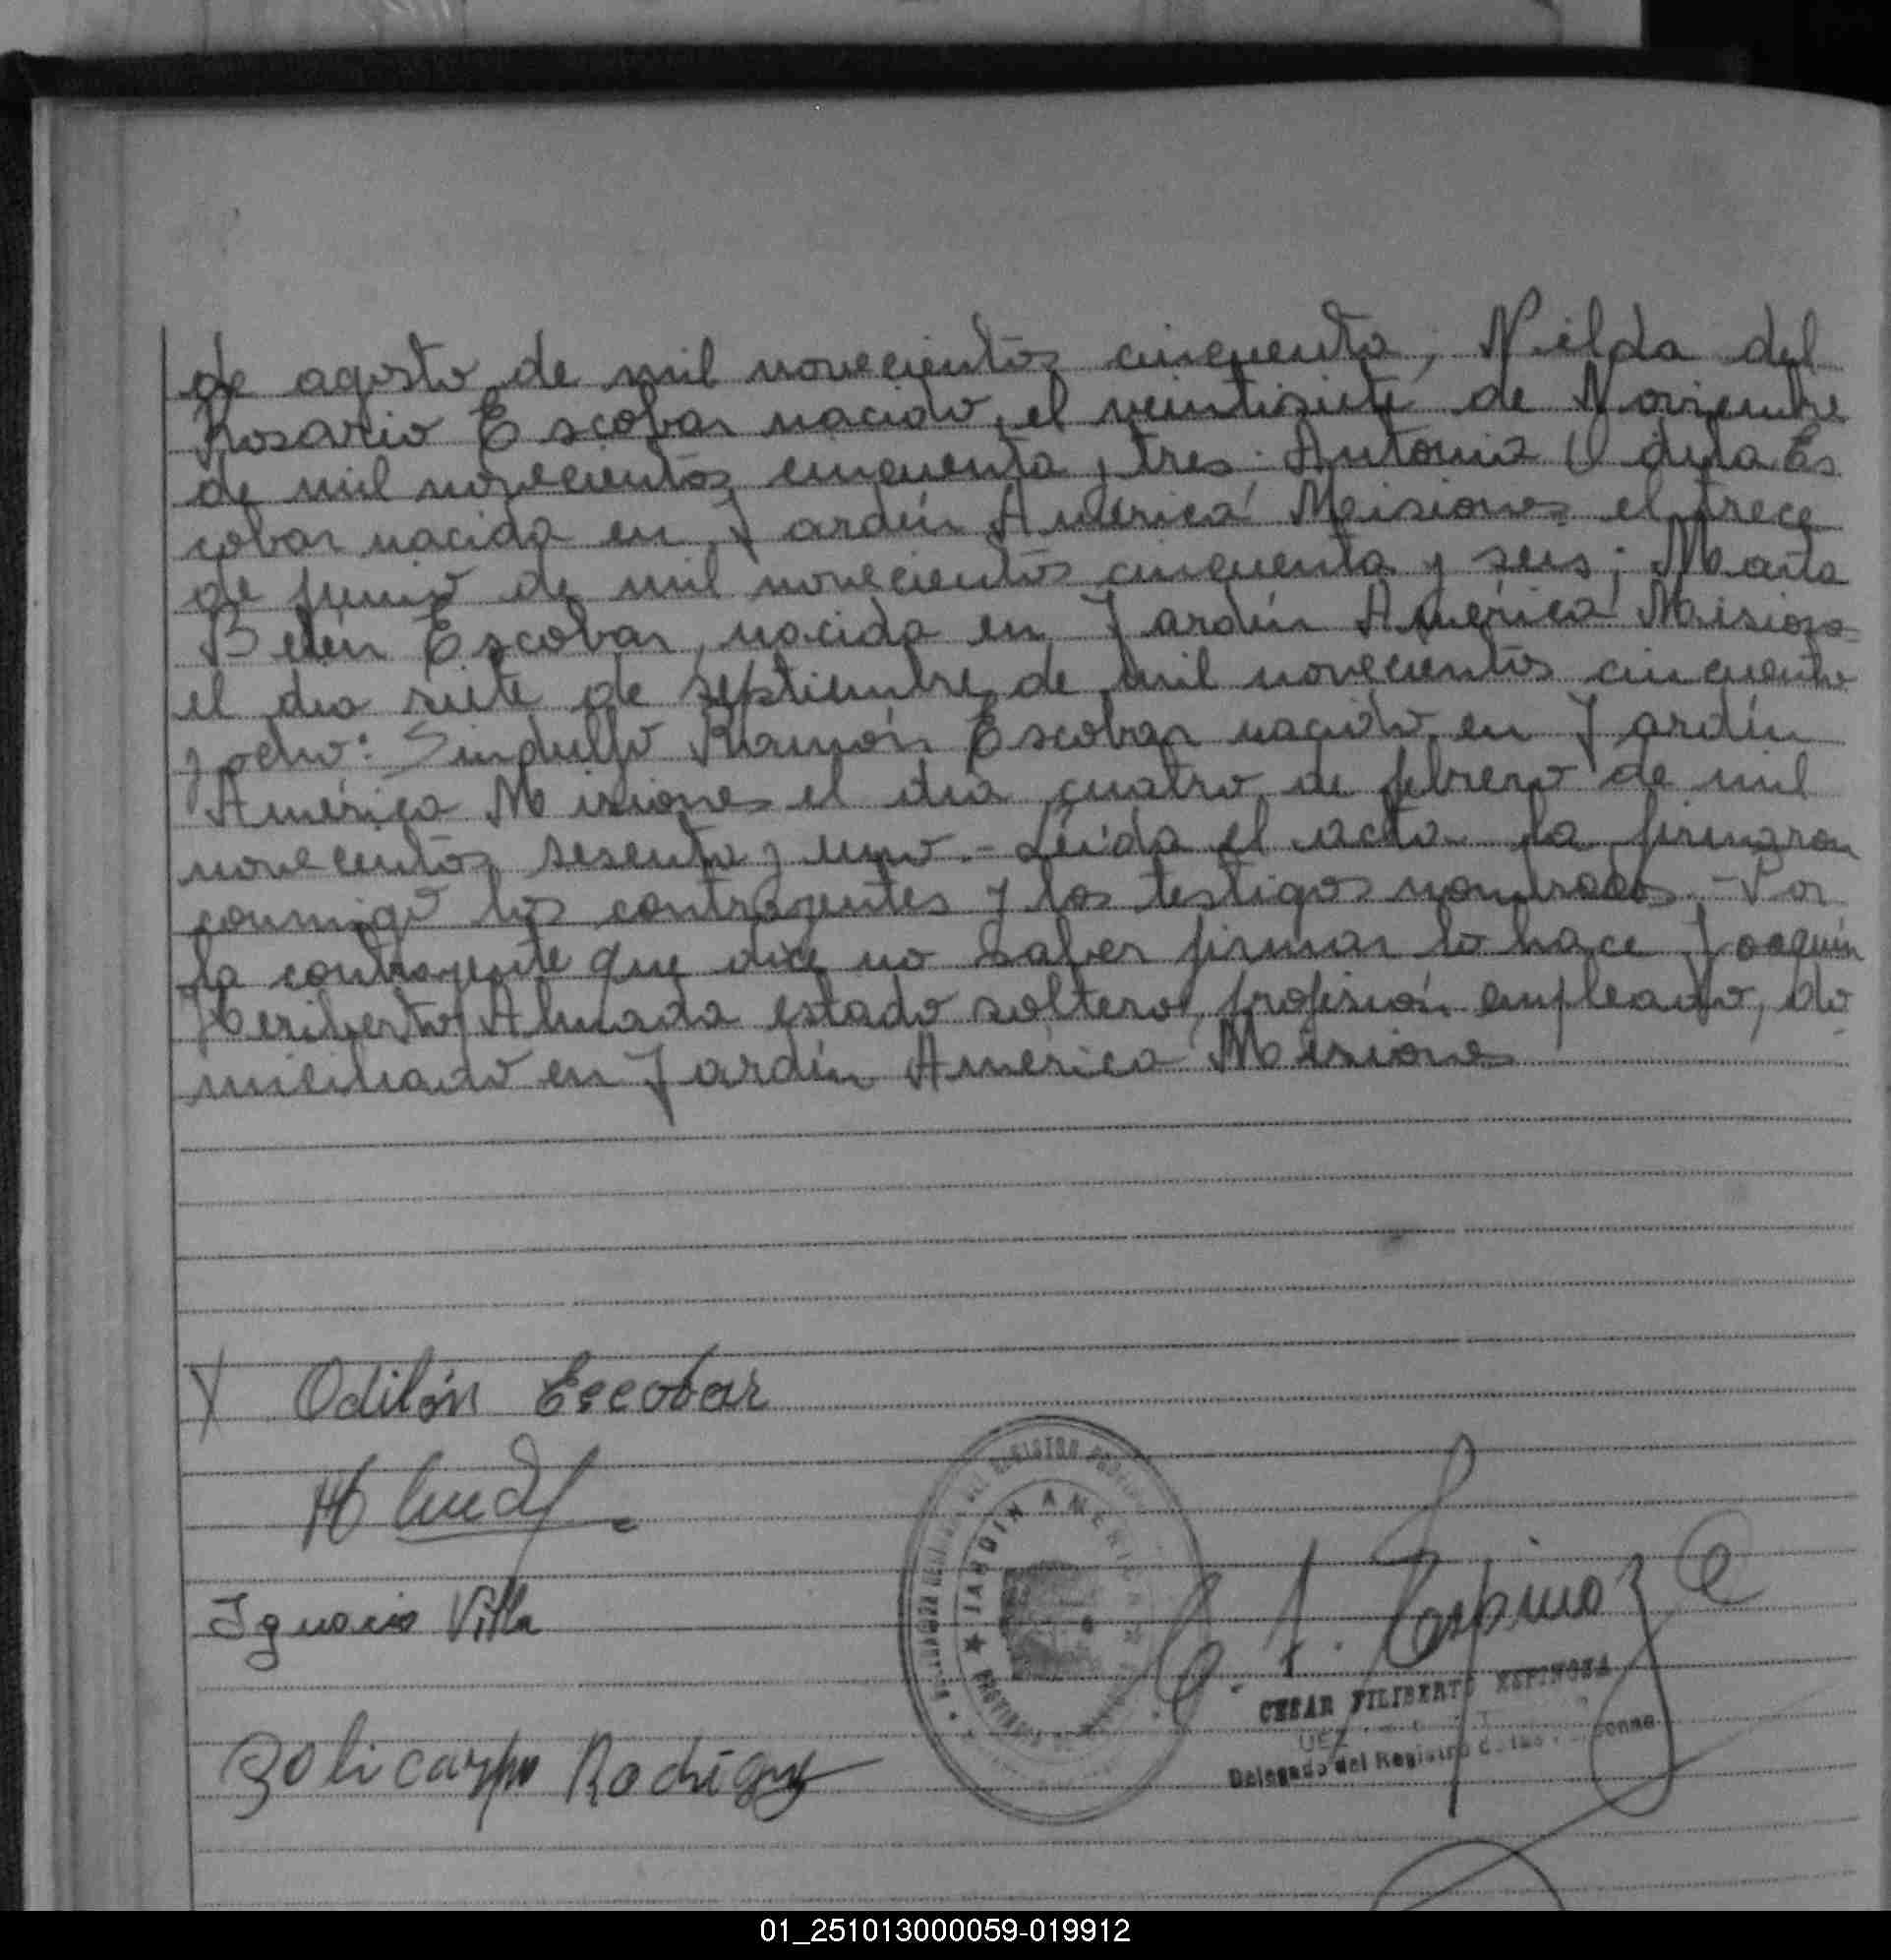 de agosto de mil novecientos cincuenta; Nilda del
Rosario Escobar nacido el veintisiete de Noviembre
de mil novecientos cincuenta y tres: Antonia Odila Es
cobar nacida en Jardín América Misiones el trece
de junio de mil novecientos cincuenta y seis; Marta
Belén Escobar, nacida en Jardín América Misiones
el dia siete de Septiembre de mil novecientos cincuenta
y ocho: Sindulfo Ramón Escobar nacido en Jardín
América Misiones el dia cuatro de febrero de mil
novecientos sesenta y uno.- Leída el acta la firmaron
conmigo los contrayentes y los testigos nombrados.- Por
la contrayente que dice no saber firmar lo hace Joaquín
Heriberto Almada estado soltero, profesión empleado, do
miciliado en Jardín América Misiones
X Odilón Escobar
Ignacio Villa
Policarpo Rodrigz
C. F. Espinoza
JARDIN AMERICA
CESAR FILIBERTO ESPINOZA
JUEZ
Delegado del Registro de las Personas
01_251013000059-019912